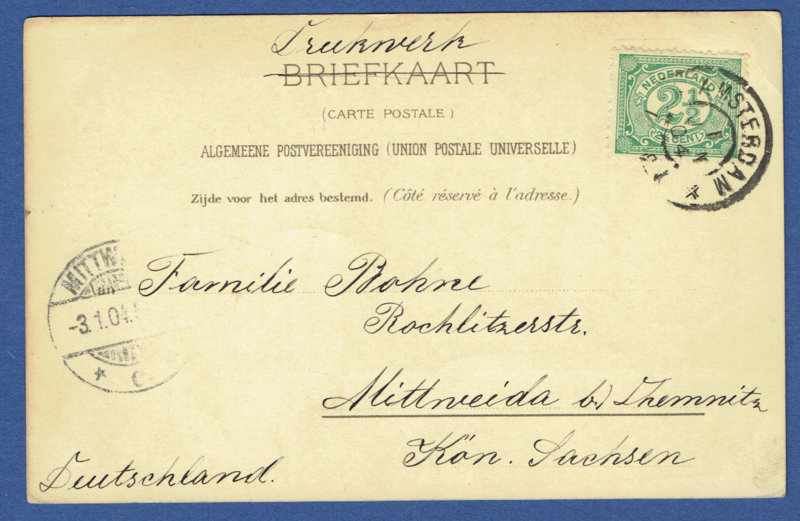 Drukwerk
BRIEFKAART
(CARTE POSTALE)
ALGEMEENE POSTVEREENIGING (UNION POSTALE UNIVERSELLE)
Zijde voor het adres bestemd. (Côté réservé à l'adresse.)
NEDERLAND
2½
CENT
AMSTERDAM
MITTW
-3.1.04.
Familie Bohne
Rochlitzerstr.
Mittweida b/ Chemnitz
Kön. Sachsen
Deutschland.